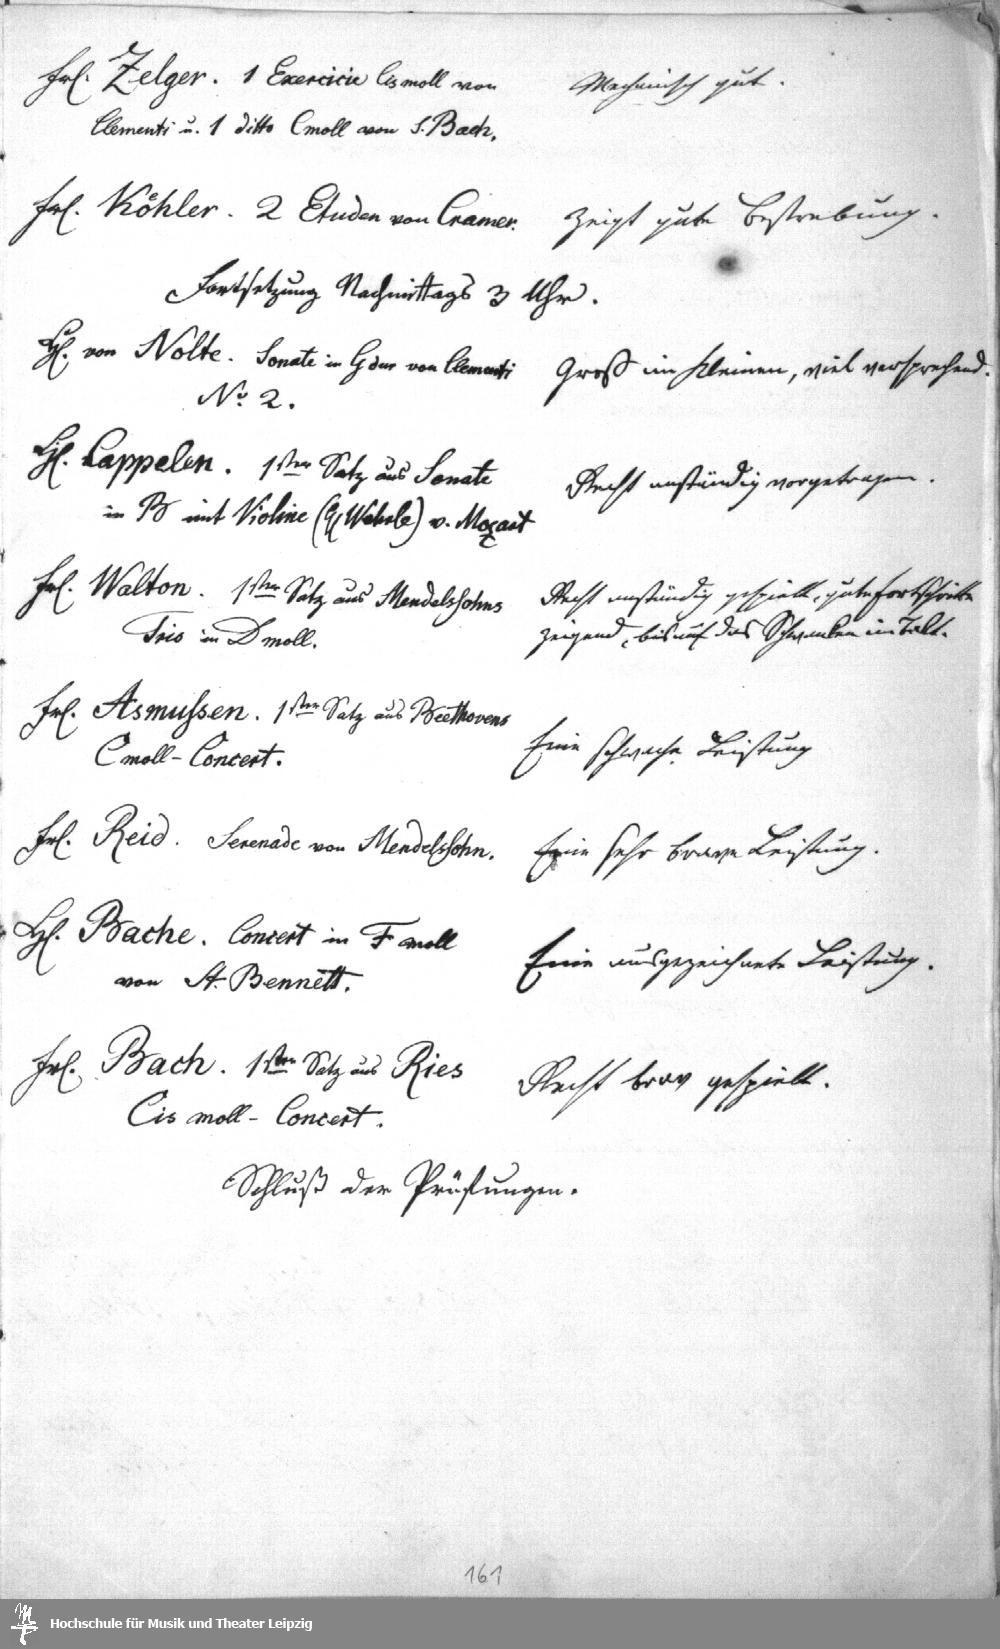 Frl. Zelger. 1 Exercicie Cis moll von
Clementi u. 1 ditto C moll von S. Bach.
Mechanisch gut.
Frl. Köhler. 2 Etuden von Cramer.
Zeigt gute Bestrebung.
Fortsetzung Nachmittags 3 Uhr.
H. von Nolte. Sonate in G dur von Clementi
No. 2.
Gross im Kleinen, viel versprechend.
H. Cappelen. 1ster Satz aus Sonate
in B mit Violine (H Wehrle) v. Mozart
Recht anständig vorgetragen.
Frl. Walton. 1ster Satz aus Mendelssohns
Trio in D moll.
Recht anständig gespielt, gute Fortschritte
zeigend, bis auf das Schwanken im Takt.
Frl. Asmussen. 1ster Satz aus Beethovens
C moll-Concert.
Eine schwache Leistung
Frl. Reid. Serenade von Mendelssohn.
Eine sehr brave Leistung.
H. Bache. Concert in F moll
von St. Bennett.
Eine ausgezeichnete Leistung.
Frl. Bach. 1ster Satz aus Ries
Cis moll-Concert.
Recht brav gespielt.
Schluß der Prüfungen.
161
Hochschule für Musik und Theater Leipzig